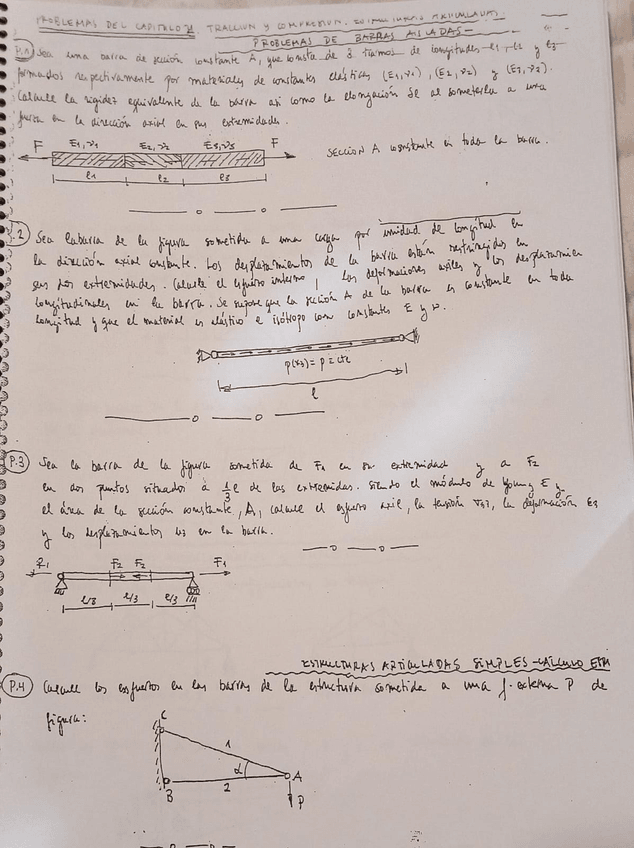 PROBLEMAS DEL CAPITULO TRACCION Y COMPRESION. ARTICULADAS
PROBLEMAS DE BARRAS AISLADAS-
P.1 Sea una barra de sección constante A, que consta de 3 tramos de longitudes l1, l2 y l3
formados respectivamente por materiales de constantes elásticas (E1,ν1), (E2,ν2) y (E3,ν3).
Calcule la rigidez equivalente de la barra así como la elongación δl al someterla a una
fuerza en la dirección axial en sus extremidades.
F E1,ν1 E2,ν2 E3,ν3 F
SECCION A constante en toda la barra.
l1 l2 l3
P.2 Sea la barra de la figura sometida a una carga por unidad de longitud en
la dirección axial constante. Los desplazamientos de la barra están restringidos en
sus dos extremidades. Calcule el esfuerzo interno, las deformaciones axiles y los desplazamientos
longitudinales en la barra. Se supone que la sección A de la barra es constante en toda
longitud y que el material es elástico e isótropo con constantes E y ν.
p(x3)=p=cte
l
P.3 Sea la barra de la figura sometida de F1 en su extremidad y a F2
en dos puntos situados a 1/3 l de las extremidades. Siendo el módulo de Young E y
el área de la sección constante, A, calcule el esfuerzo axil, la tensión σ33, la deformación ε3
y los desplazamientos u3 en la barra.
R1 F2 F2 F1
l/3 l/3 l/3
ESTRUCTURAS ARTICULADAS SIMPLES-CÁLCULO
P.4 Calcule los esfuerzos en las barras de la estructura sometida a una f. externa P de
figura:
C
1
α A
B 2
P